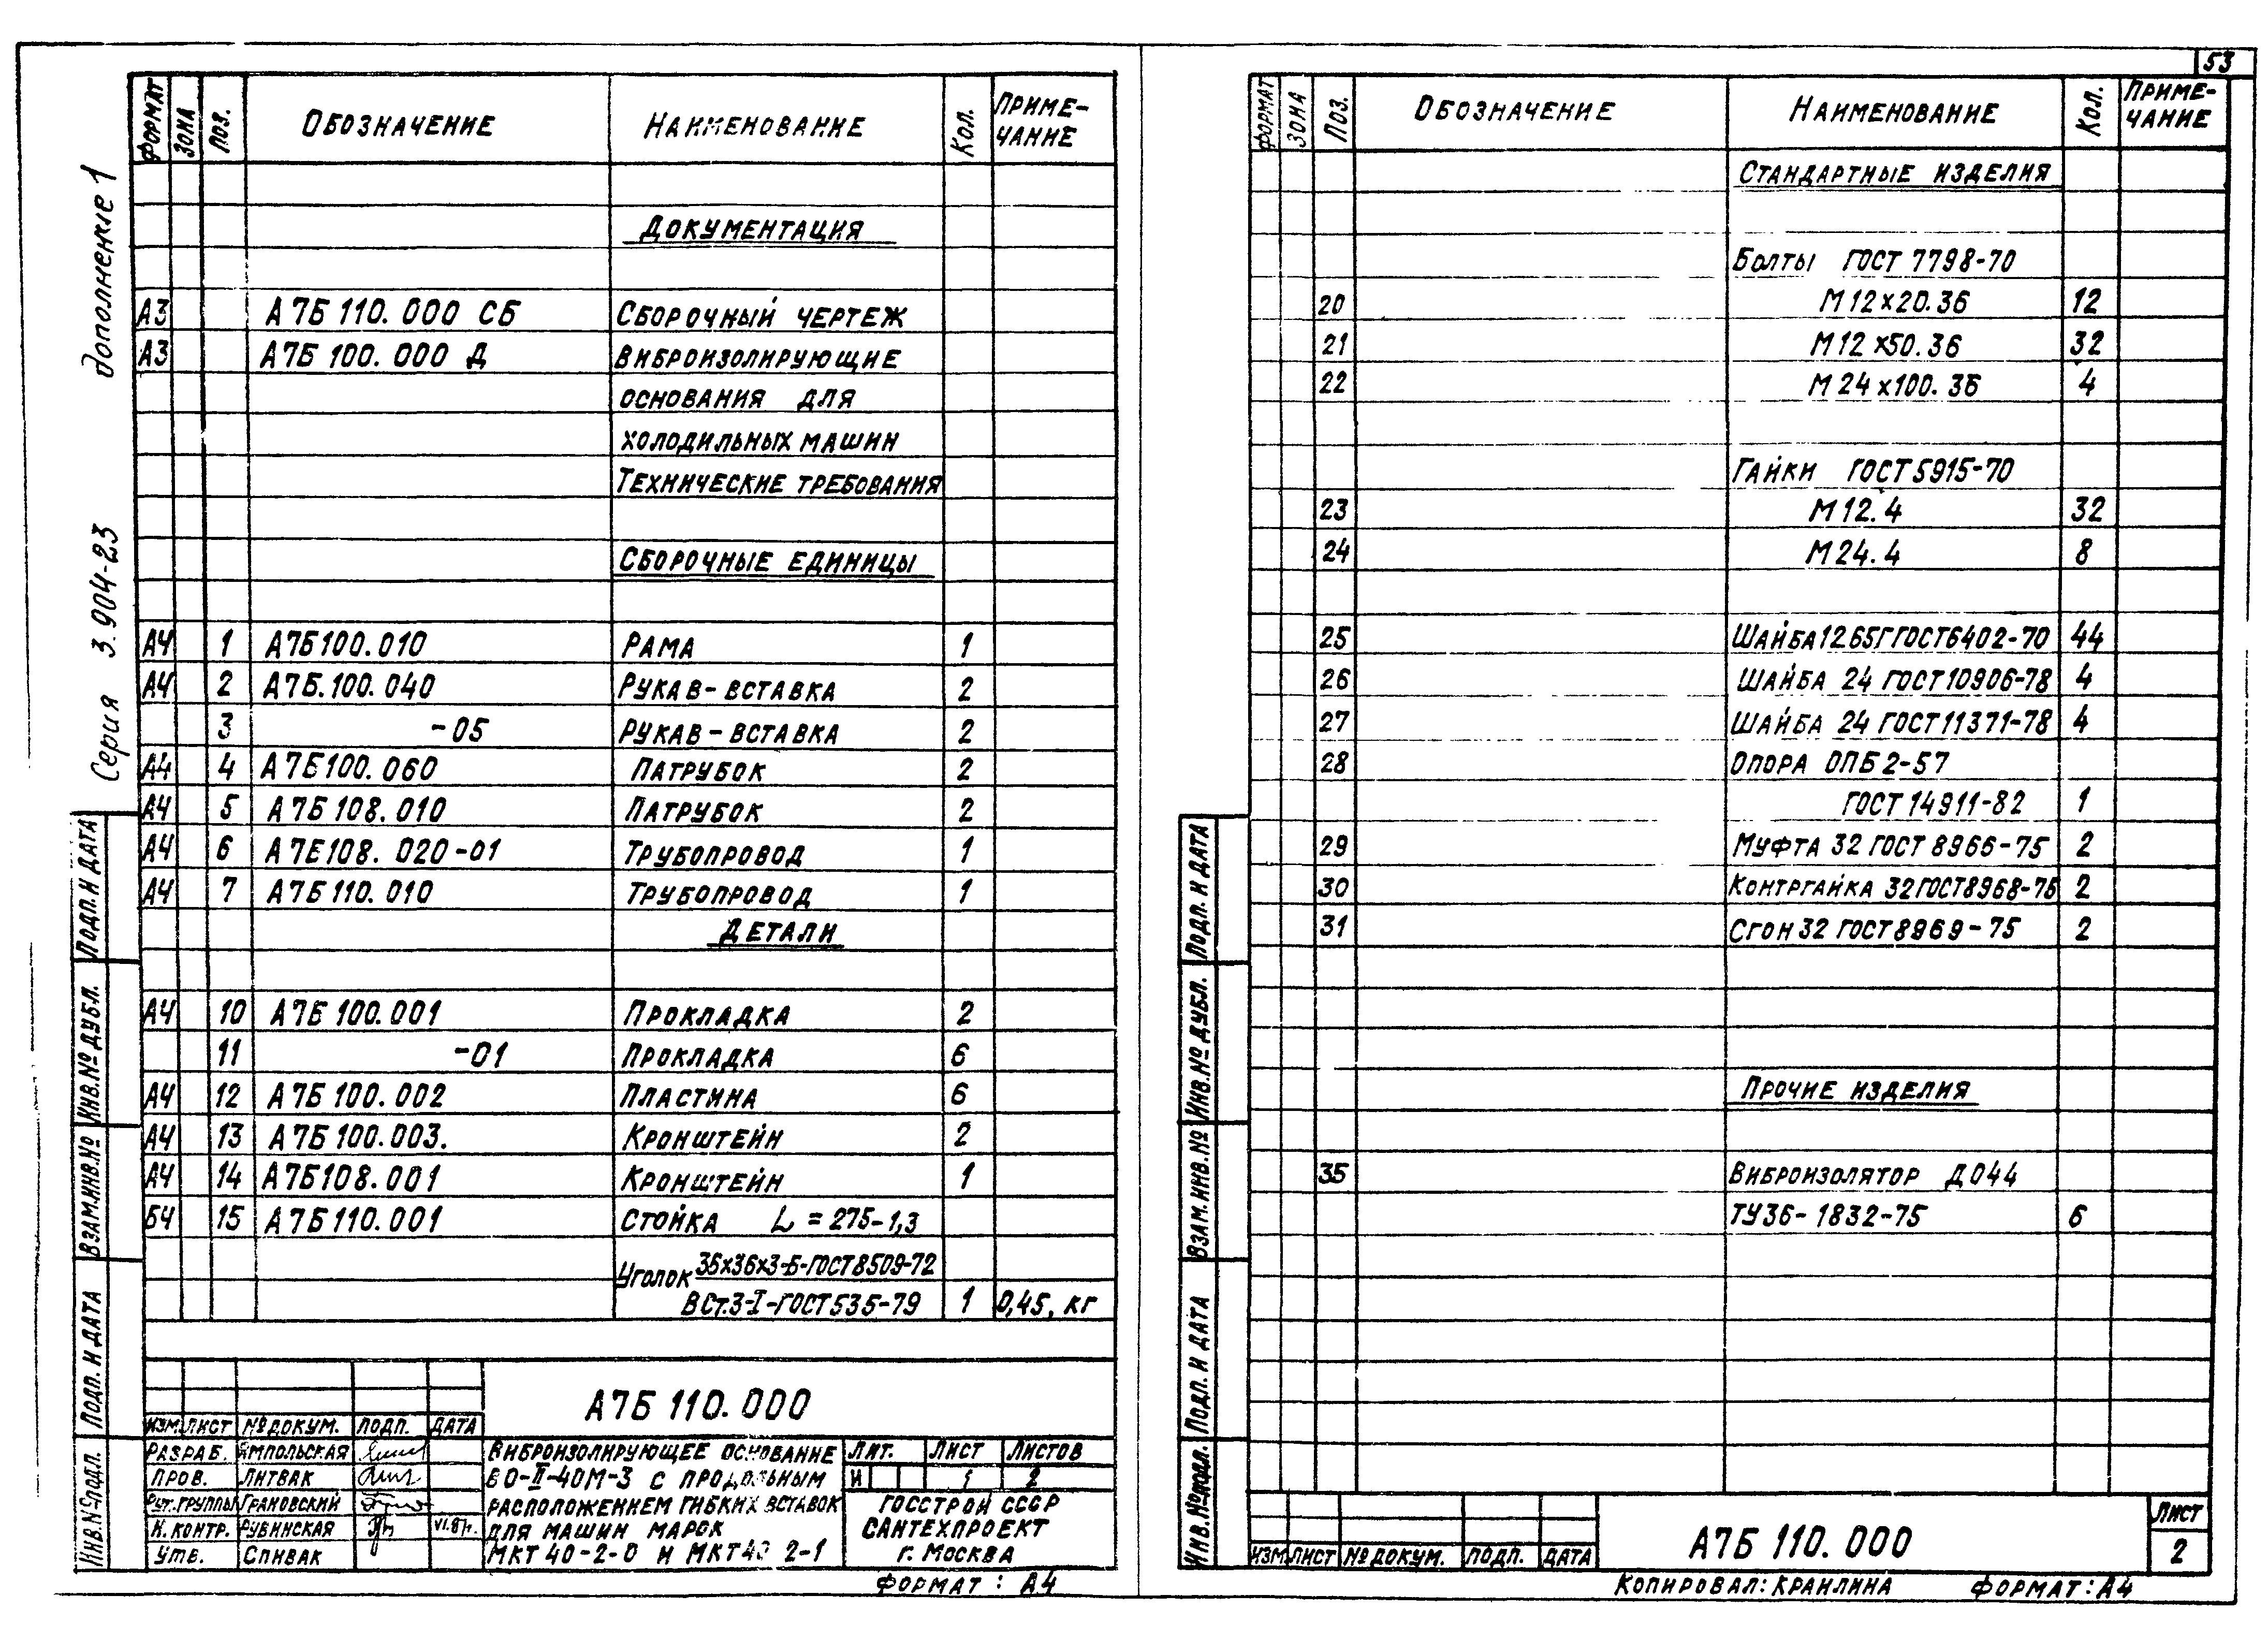 53
Дополнение 1
Серия 3.904-23
ФОРМАТ ЗОНА ПОЗ. ОБОЗНАЧЕНИЕ НАИМЕНОВАНИЕ КОЛ. ПРИМЕ-
ЧАНИЕ
ДОКУМЕНТАЦИЯ
А3 А7Б 110.000 СБ СБОРОЧНЫЙ ЧЕРТЕЖ
А3 А7Б 100.000 Д ВИБРОИЗОЛИРУЮЩИЕ
ОСНОВАНИЯ ДЛЯ
ХОЛОДИЛЬНЫХ МАШИН
ТЕХНИЧЕСКИЕ ТРЕБОВАНИЯ
СБОРОЧНЫЕ ЕДИНИЦЫ
А4 1 А7Б100.010 РАМА 1
А4 2 А7Б.100.040 РУКАВ-ВСТАВКА 2
3 -05 РУКАВ-ВСТАВКА 2
А4 4 А7Б100.060 ПАТРУБОК 2
А4 5 А7Б108.010 ПАТРУБОК 2
А4 6 А7Б108.020-01 ТРУБОПРОВОД 1
А4 7 А7Б110.010 ТРУБОПРОВОД 1
ДЕТАЛИ
А4 10 А7Б 100.001 ПРОКЛАДКА 2
11 -01 ПРОКЛАДКА 6
А4 12 А7Б 100.002 ПЛАСТИНА 6
А4 13 А7Б 100.003. КРОНШТЕЙН 2
А4 14 А7Б108.001 КРОНШТЕЙН 1
БЧ 15 А7Б110.001 СТОЙКА L = 275-1,3
УГОЛОК 36х36х3-Б-ГОСТ8509-72
ВСт.3-I-ГОСТ535-79 1 0,45, кг
ПОДП. И ДАТА
ИНВ.№ ДУБЛ.
ВЗАМ.ИНВ.№
ПОДП. И ДАТА
ИНВ.№ ПОДЛ.
А7Б 110.000
ИЗМ. ЛИСТ № ДОКУМ. ПОДП. ДАТА
РАЗРАБ. ЯМПОЛЬСКАЯ
ПРОВ. ЛИТВАК
РУК.ГРУППЫ ГРАНОВСКИЙ
Н. КОНТР. РУБИНСКАЯ
УТВ. СПИВАК
ВИБРОИЗОЛИРУЮЩЕЕ ОСНОВАНИЕ
ВО-II-40М-3 С ПРОДОЛЬНЫМ
РАСПОЛОЖЕНИЕМ ГИБКИХ ВСТАВОК
ДЛЯ МАШИН МАРОК
МКТ 40-2-0 И МКТ40 2-1
ЛИТ. ЛИСТ ЛИСТОВ
И 1 2
ГОССТРОЙ СССР
САНТЕХПРОЕКТ
г. МОСКВА
ФОРМАТ: А4
ФОРМАТ ЗОНА ПОЗ. ОБОЗНАЧЕНИЕ НАИМЕНОВАНИЕ КОЛ. ПРИМЕ-
ЧАНИЕ
СТАНДАРТНЫЕ ИЗДЕЛИЯ
БОЛТЫ ГОСТ 7798-70
20 М12х20.36 12
21 М12х50.36 32
22 М24х100.36 4
ГАЙКИ ГОСТ5915-70
23 М12.4 32
24 М24.4 8
25 ШАЙБА12.65Г ГОСТ6402-70 44
26 ШАЙБА 24 ГОСТ10906-78 4
27 ШАЙБА 24 ГОСТ11371-78 4
28 ОПОРА ОПБ2-57
ГОСТ 14911-82 1
29 МУФТА 32 ГОСТ 8966-75 2
30 КОНТРГАЙКА 32ГОСТ8968-75 2
31 СГОН32 ГОСТ8969-75 2
ПРОЧИЕ ИЗДЕЛИЯ
35 ВИБРОИЗОЛЯТОР ДО44
ТУ36-1832-75 6
ПОДП. И ДАТА
ИНВ.№ ДУБЛ.
ВЗАМ.ИНВ.№
ПОДП. И ДАТА
ИНВ.№ ПОДЛ.
ИЗМ ЛИСТ № ДОКУМ. ПОДП. ДАТА
А7Б 110.000
ЛИСТ
2
КОПИРОВАЛ: КРАНЛИНА ФОРМАТ: А4